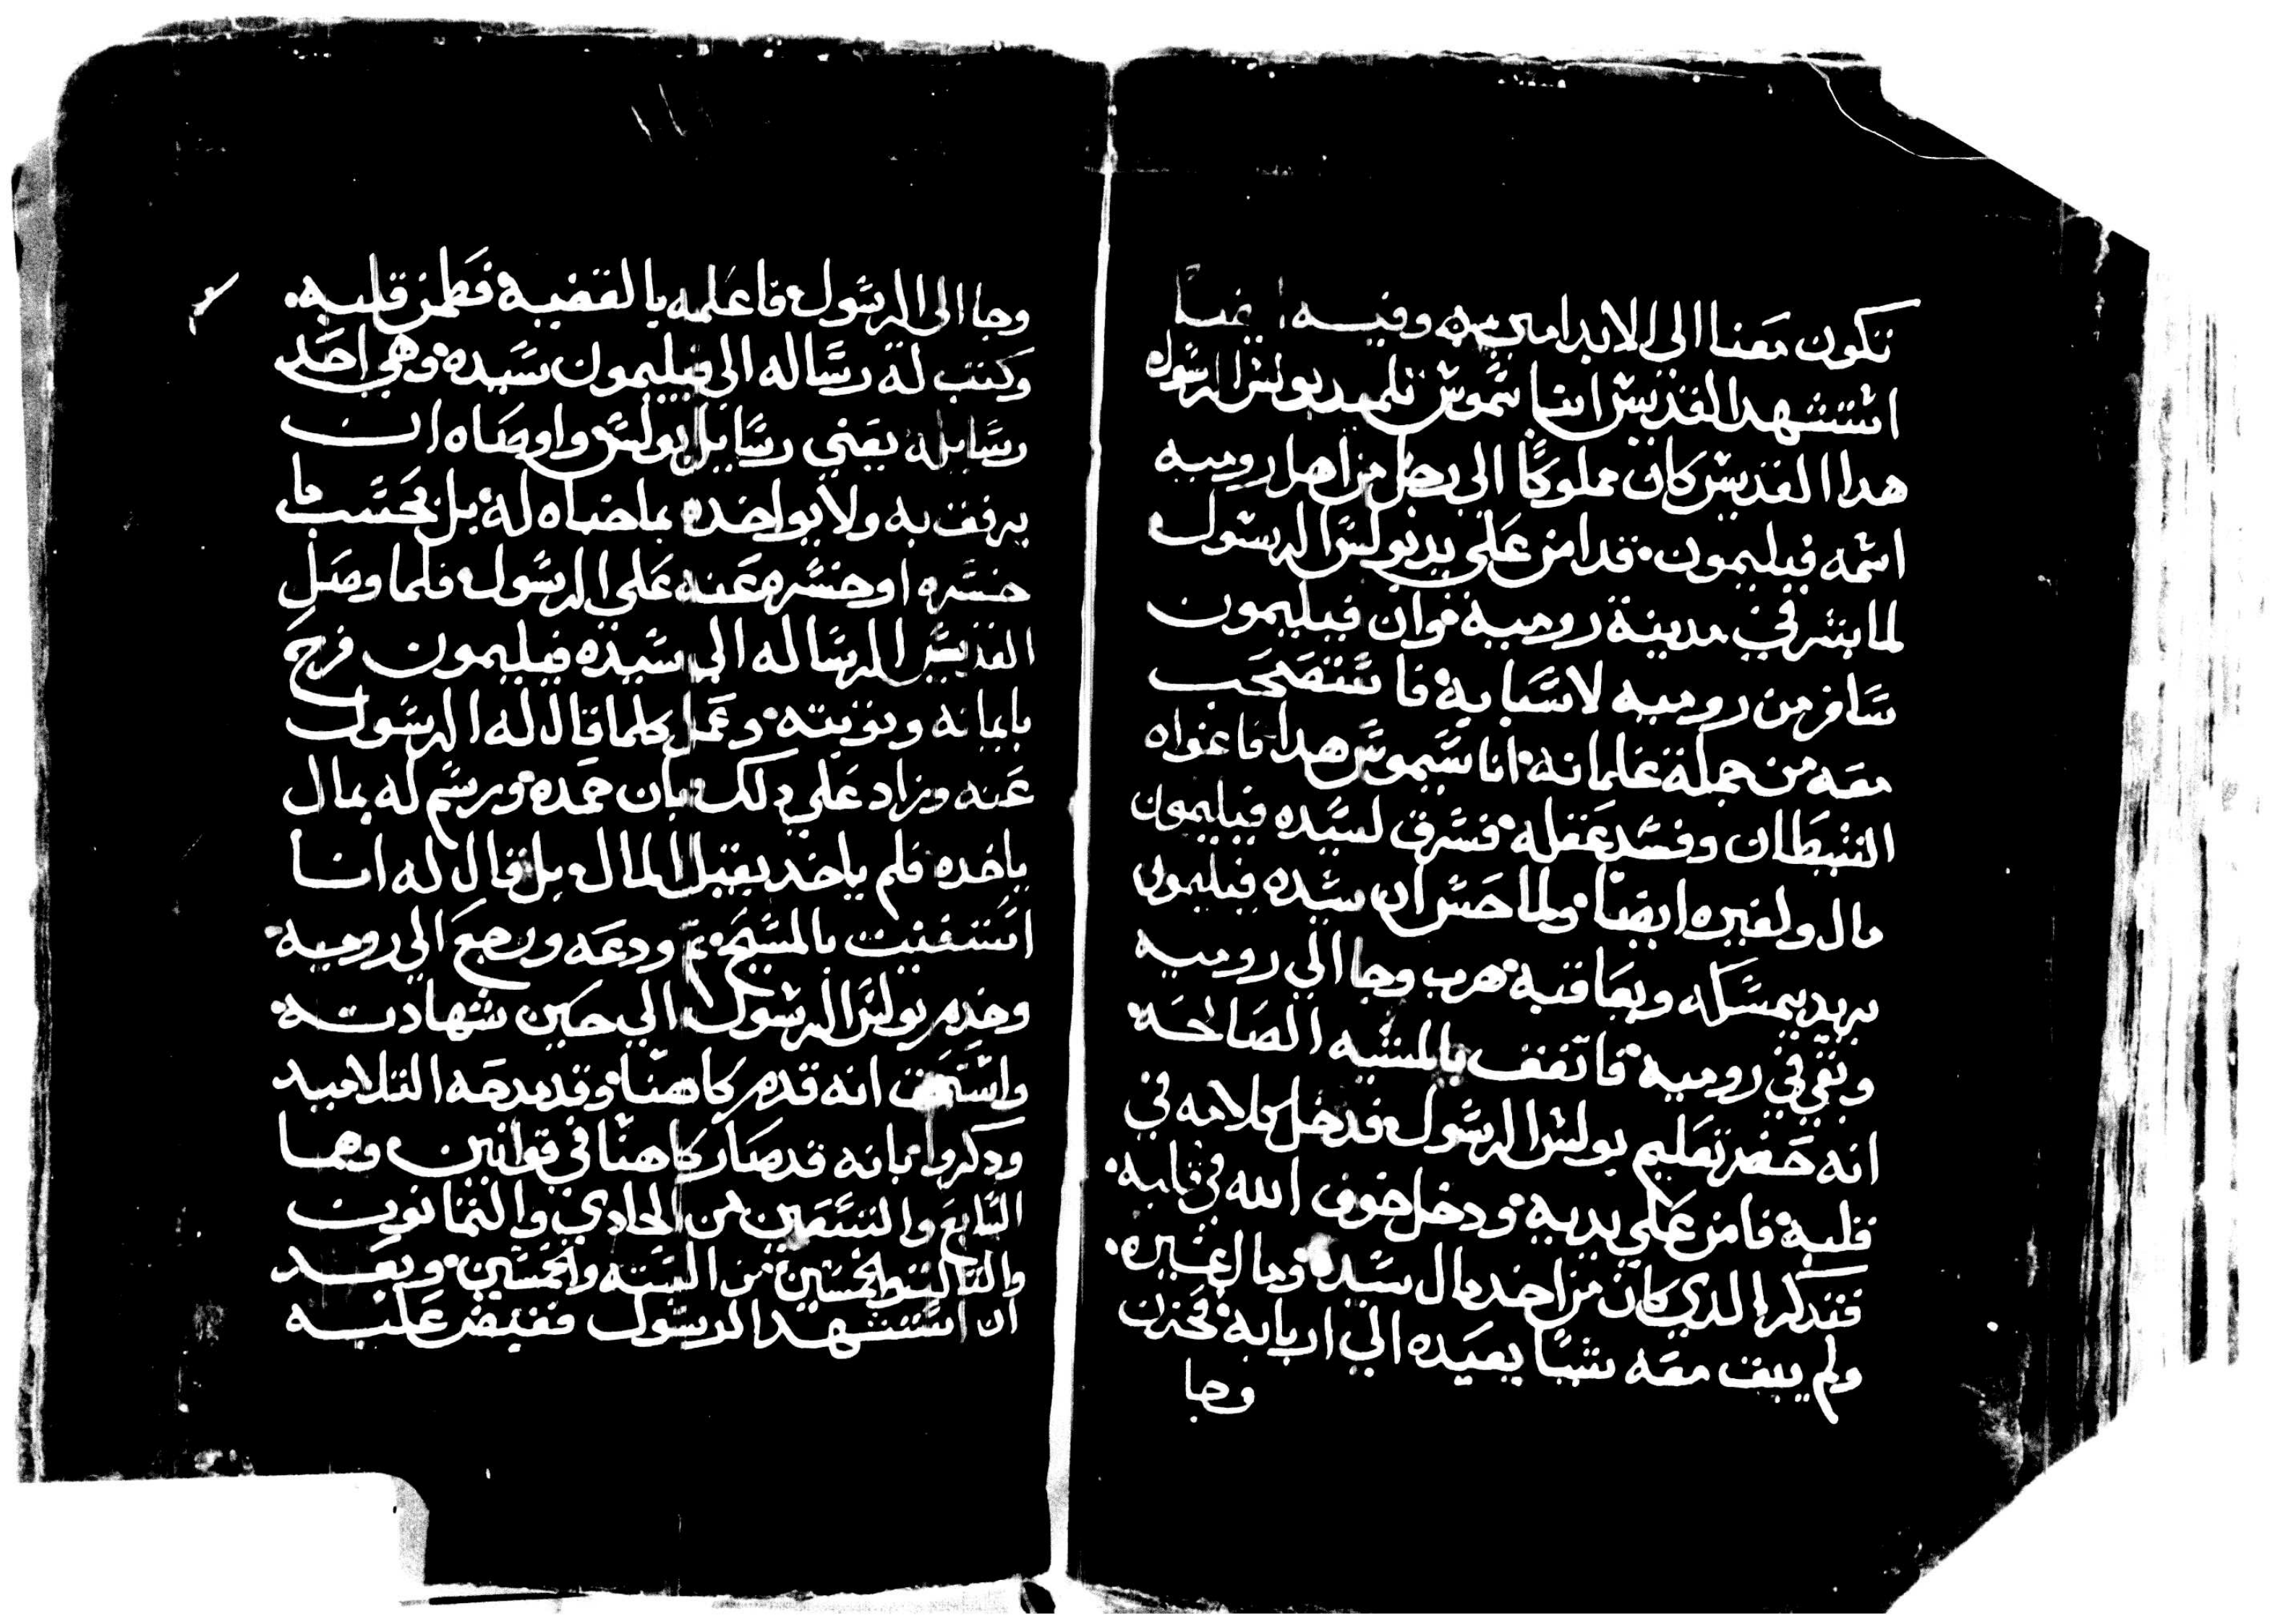 تكون معنا الى الابد امين وفيه ايضا
استشهد القديس انسا سموس تلميد بولس الرسول
هدا القديس كان مملوكا الي رجل من اهل روميه
اسمه فيليمون. قد امن علي يد بولس الرسول
لما بشر في مدينة رومية. وان فيليمون
سافر من روميه لاسبابه. فاستصحب
معه من جملة غلمانه. اناسيموس هدا فاغواه
الشيطان وفسد عقله. فسرق لسيده فيليمون
مال ولغيره ايضا. ولما حس ان سيده فيليمون
يريد يمسكه ويعاقبه. هرب وجا الي روميه
وبقي في رومية. فاتفق بالمشيه الصالحه.
انه حضر تعليم بولس الرسول فدخل كلامه في
قلبه. فامن علي يديه. ودخل خوف الله في قلبه.
فتدكر الدي كان من اخد مال سيده. ومال غيره.
ولم يبق معه شيا يعيده الي اربابه. فحزن
وجا
وجا الى الرسول. فاعلمه بالقضية فطمن قلبه.
وكتب له رساله الى فيليمون سيده. وهي احد
رسايله يعني رسايل بولس واوصاه ان
يرفق به ولا يواخده بما جناه له. بل يحسب ما
خسره او خسره عنه علي الرسول. فلما وصل
القديس بالرساله الي سيده فيليمون فرح
بايمانه وتوبته. وعمل كلما قال له الرسول
عنه وزاد علي دلك بان حمده. ورسم له بمال
ياخده فلم ياخد يقبل المال. بل قال له انا
استغنيت بالمسيح. تم ودعه ورجع الي رومية.
وخدم بولس الرسول الي حين شهادته.
واستحق انه قدم كاهنا. وقد مدحه التلاميد
ودكروا بانه قد صار كاهنا في قوانين وهما
السابع والتسعين من الحادي والتمانون
والتالت والخمسين. من السته والخمسين. وبعد
ان استشهد الرسول فقبض عليه